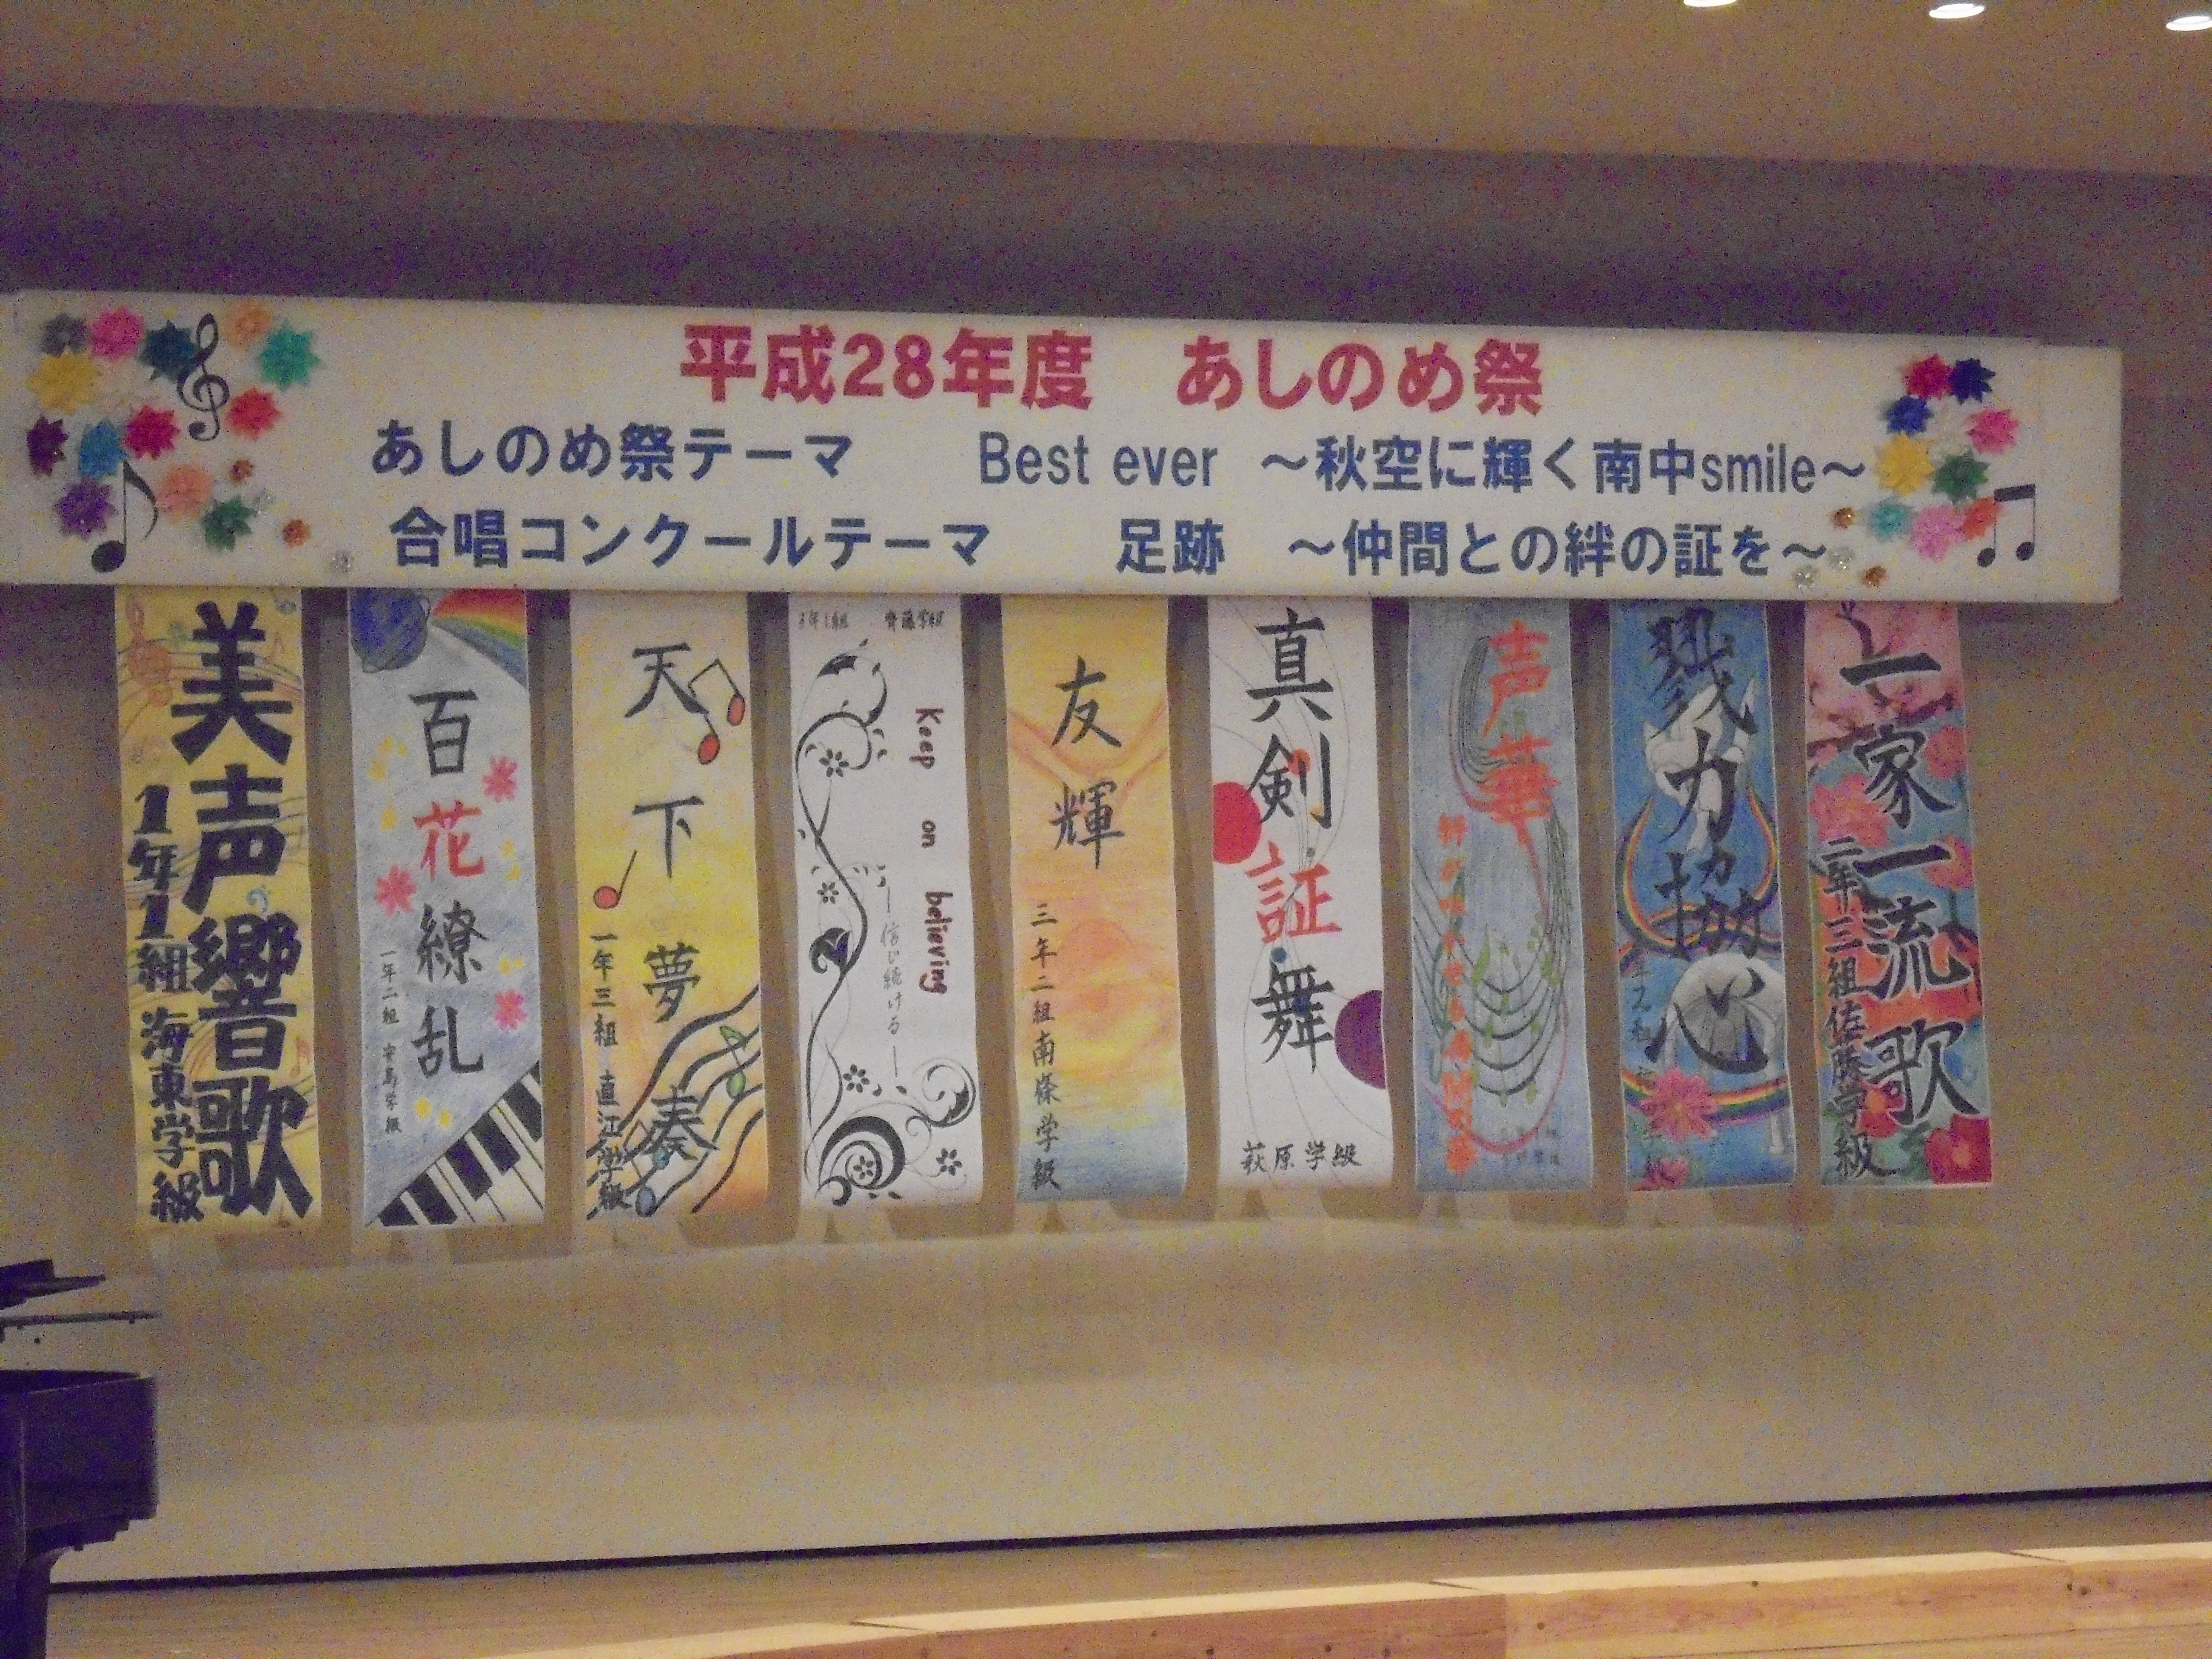 平成28年度　あしのめ祭
あしのめ祭テーマ　Best ever　～秋空に輝く南中smile～
合唱コンクールテーマ　足跡　～仲間との絆の証を～
美声響歌
1年1組 海東学級
百花繚乱
一年二組 安島学級
天下夢奏
一年三組 直江学級
3年1組 齊藤学級
Keep on believing
―信じ続ける―
友輝
三年二組南條学級
真剣証舞
萩原学級
声華
戮力協心
一家一流歌
二年三組佐藤学級